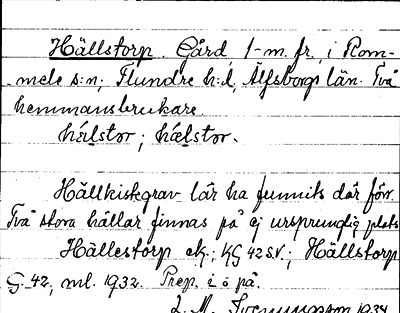 Hällstorp Gård, 1-m. fr., i Rom-
mele s:n; Flundre h:d, Älfsborgs län. Två
hemmansbrukare.
hǽlstor; hǽlstor.
Hällkistegrav lär ha funnits där förr.
Två stora hällar finnas på ej ursprunglig plats
Hällestorp ek.; KG 42 SV.; Hällstorp
G. 42, ml. 1932. Prep. i ö på.